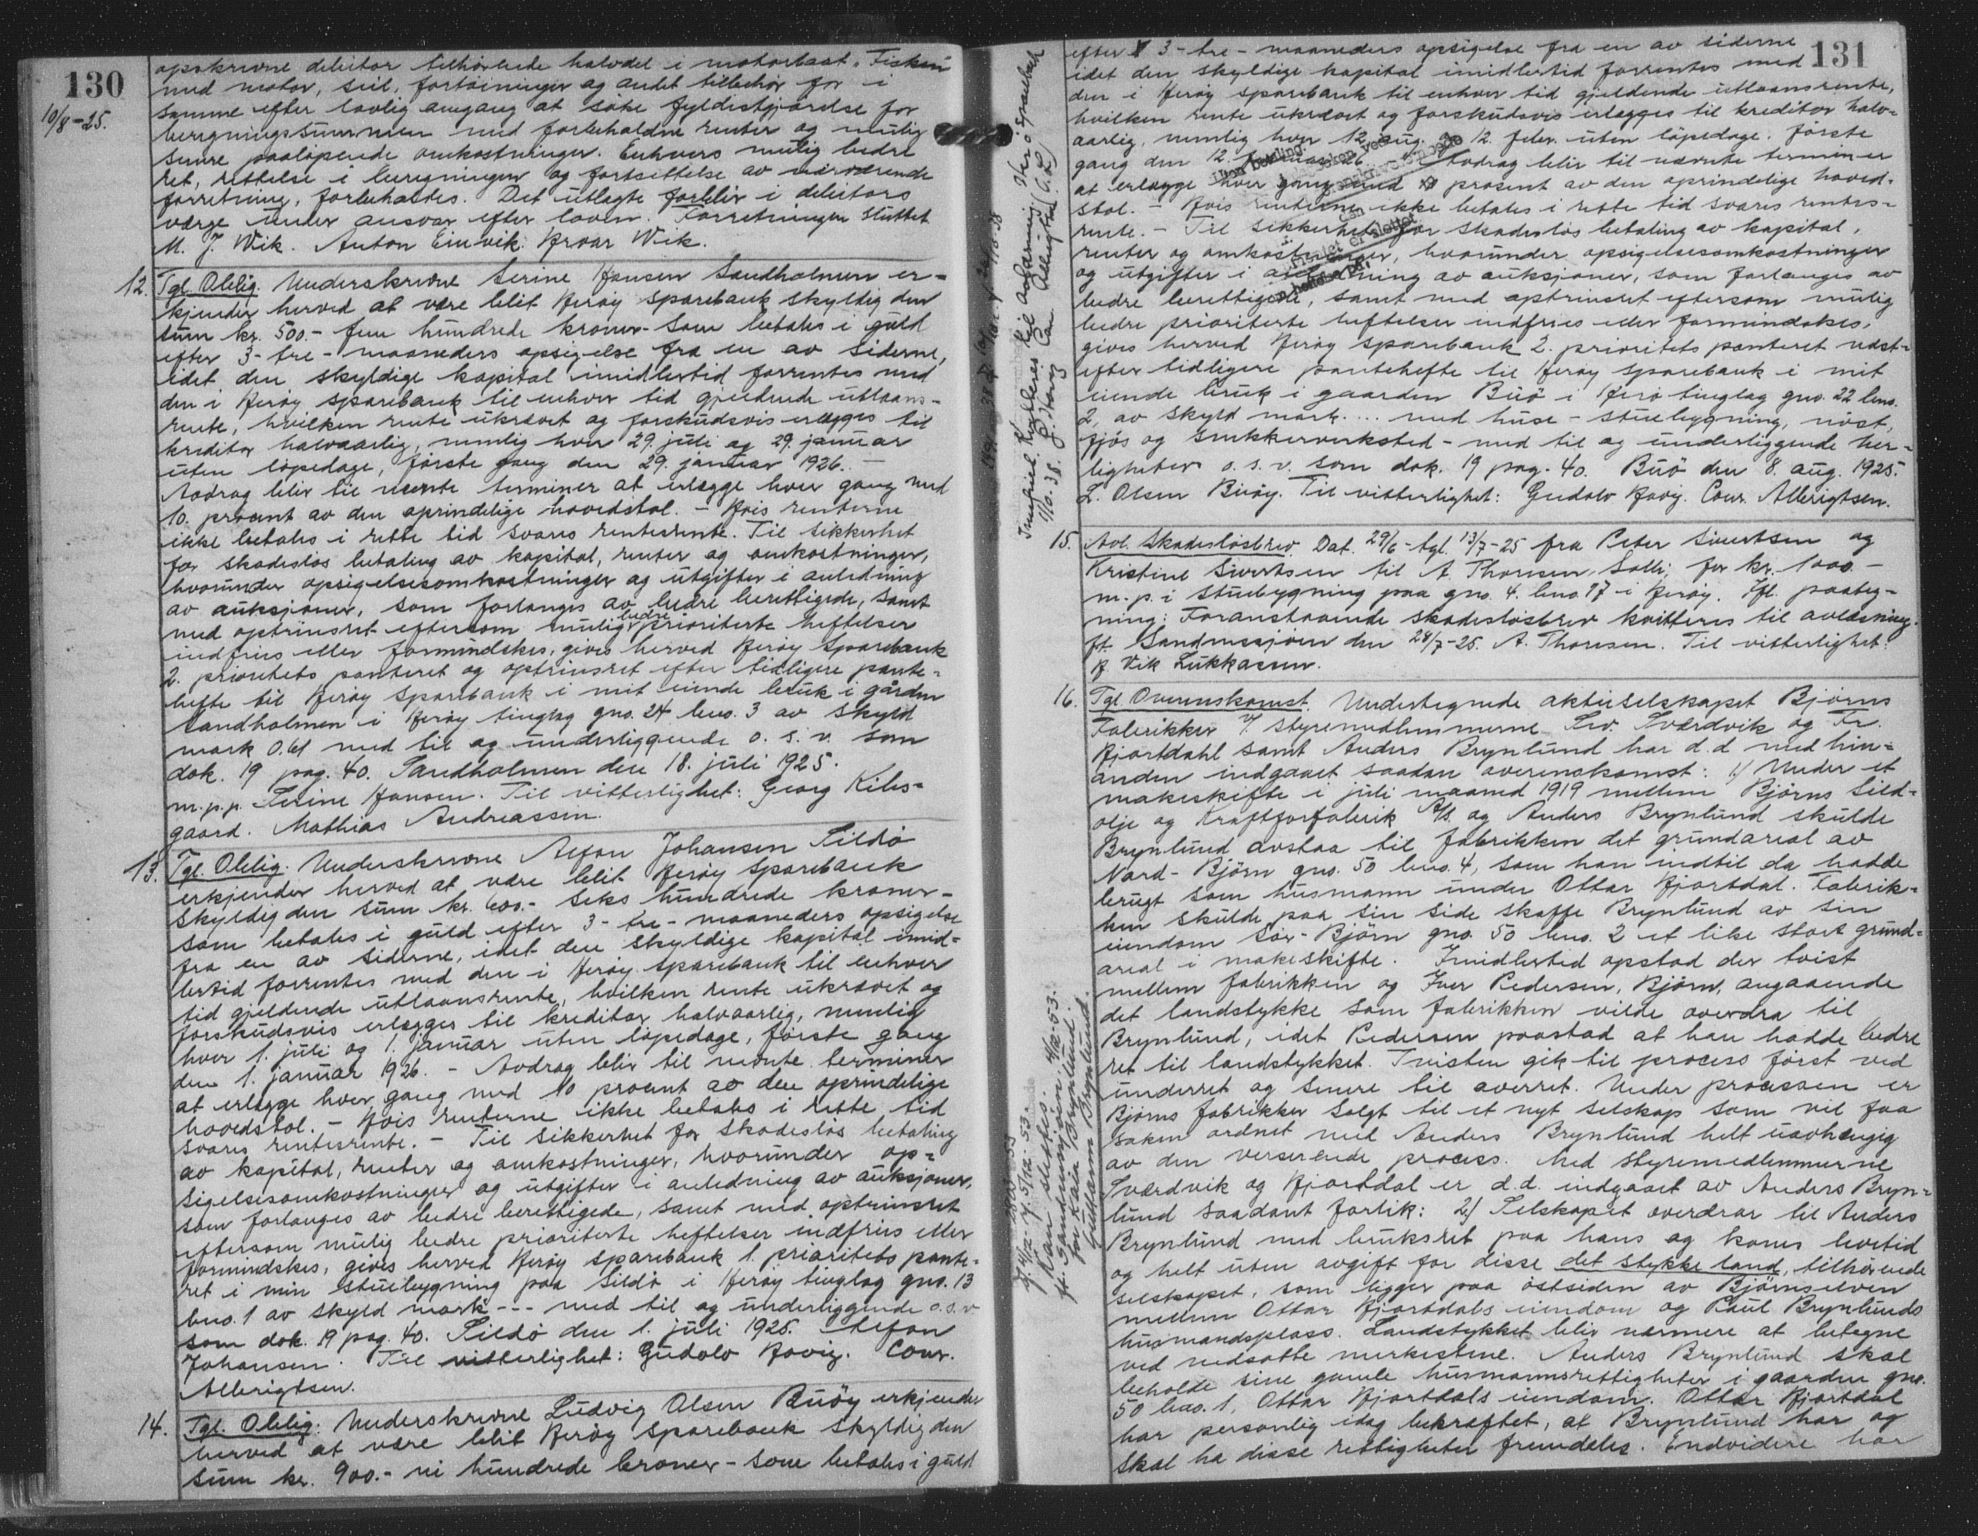 130
10/8-25.
opskrevne debitor tilhörende halvdel i motorbaat "Fisken"
med motor, seil, fortöininger og andet tilbehör for i
samme efter lovlig omgang at söke fyldistgjörelse for
beregningssummen med forbeholdne renter og mulig
senere paalöpende omkostninger. Enhvers mulig bedre
ret, rettelse i beregningen og fortsættelse av nærværende
forretning, forbeholdes. Det utlagte forblir i debitors
værge under ansvar efter loven. Forretningen sluttet
M. J. Wik. Anton Einvik. Hroar Wik.
12. Tgl. Oblig. Underskrevne Serine Hansen Sandholmen er-
kjender herved at være blit Heröy Sparebank skyldig den
sum kr. 500.- fem hundrede kroner - som betales i guld
efter 3 - tre - maaneders opsigelse fra en av siderne,
idet den skyldige kapital imidlertid forrentes med
den i Heröy sparebank til enhver tid gjældende utlaans-
rente, hvilken rente ukrævet og forskudsvis erlægges til
kreditor halvaarlig, nemlig hver 29. juli og 29. januar
uten löpedage, förste gang den 29. januar 1926. -
Avdrag blir til nævnte terminer at erlægge hver gang med
10. procent av den oprindelige hovedstol. - Hvis renterne
ikke betales i rette tid svares rentesrente. Til sikkerhet
for skadeslös betaling av kapital, renter og omkostninger,
hvorunder opsigelsesomkostninger og utgifter i anledning
av auksjoner, som forlanges av bedre berettigede, samt
med optrinsret eftersom mulig bedre prioriterte heftelser
indfries eller formindskes, gives herved Heröy Sparebank
2. prioritets panteret og optrinsret efter tidligere pante-
hefte til Heröy Sparebank i mit eiende bruk i gården
Sandholmen i Heröy tinglag gno. 24 bno. 3 av skyld
mark 0.61 med til og underliggende o. s. v. som
dok. 19 pag. 40. Sandholmen den 18. juli 1925.
m.p.p. Serine Hansen. Til vitterlighet: Georg Kils-
gaard. Mathias Andreassen.
13. Tgl. Oblig. Underskrevne Alfon Johansen Sildö
erkjender herved at være blit Heröy Sparebank
skyldig den sum kr. 600.- seks hundrede kroner -
som betales i guld efter 3 - tre - maaneders opsigelse
fra en av siderne, idet den skyldige kapital imid-
lertid forrentes med den i Heröy Sparebank til enhver
tid gjeldende utlaansrente, hvilken rente ukrævet og
forskudsvis erlægges til kreditor halvaarlig, nemlig
hver 1. juli og 1. januar uten löpedage, förste gang
den 1. januar 1926. - Avdrag blir til nævnte terminer
at erlægge hver gang med 10 procent av den oprindelige
hovedstol. - Hvis renterne ikke betales i rette tid
svares rentesrente. - Til sikkerhet for skadeslös betaling
av kapital, renter og omkostninger, hvorunder op-
sigelsesomkostninger og utgifter i anledning av auksjoner,
som forlanges av bedre berettigede, samt med optrinsret
eftersom mulig bedre prioriterte heftelser indfries eller
formindskes, gives herved Heröy Sparebank 1. prioritets pante-
ret i min stuebygning paa Sildö i Heröy tinglag gno. 13
bno. 1 av skyld mark --- med til og underliggende o.s.v.
som dok. 19 pag. 40. Sildö den 1. juli 1925. Alfon
Johansen. Til vitterlighet: Gudolv Hovig. Conr.
Albrigtsen.
14. Tgl. Oblig. Underskrevne Ludvig Olsen Buöy erkjender
herved at være blit Heröy Sparebank skyldig den
sum kr. 900.- ni hundrede kroner - som betales i guld
131
efter 3 - tre - maaneders opsigelse fra en av siderne
idet den skyldige kapital imidlertid forrentes med
den i Heröy sparebank til enhver tid gjeldende utlaansrente,
hvilken rente ukrævet og forskudsvis erlægges til kreditor halv-
aarlig, nemlig hver 12. aug. og 12. febr. uten löpedage, förste
gang den 12. Avdrag blir til nævnte terminer
at erlægge hver gang med prosent av den oprindelige hoved-
stol. - Hvis renterne ikke betales i rette tid svares rentes-
rente. - Til sikkerhet for skadeslös betaling av kapital,
renter og omkostninger, hvorunder opsigelsesomkostninger
og utgifter i anledning av auksjoner, som forlanges av
bedre berettigede, samt med optrinsret eftersom mulig
bedre prioriterte heftelser indfries eller formindskes,
gives herved Heröy Sparebank 2. prioritets panteret næst-
efter tidligere pantehefte til Heröy Sparebank i mit
eiende bruk i gaarden Buö i Herö tinglag gno. 22 bno.
2, av skyld mark .... med huse - stuebygning, nöst,
fjös og snekkerverksted - med til og underliggende her-
ligheter o. s. v. som dok. 19 pag. 40. Buö den 8. aug. 1925.
L. Olsen Buöy. Til vitterlighet: Gudolv Hovig. Conr. Albrigtsen.
15. Avl. Skadeslösbrev. Dat. 29/6 - tgl. 13/7-25 fra Peter Sivertsen og
Kristine Sivertsen til A. Thorsen, Solli, for kr. 1000.-
m.p. i stuebygning paa gno. 4. bno. 17 i Heröy. Ifl. paateg-
ning: Foranstaaende skadeslösbrev kvitteres til avlæsning.
pt. Sandnessjöen den 28/7-25. A. Thorsen. Til vitterlighet:
H Vik Lukkassen.
16. Tgl. Overenskomst. Undertegnede aktieselskapet Bjørns
Fabrikker v/ styremedlemmerne Sev. Sværdvik og Fr.
Hjortdahl samt Anders Brynlund har d.d. med hin-
anden indgaaet saadan overenskomst: 1) Under et
makeskifte i juli maaned 1919 mellem Bjørns Sild-
olje og Kraftforfabrik A/S. og Anders Brynlund skulde
Brynlund avstaa til fabrikken det grundareal av
Nord-Bjørn gno. 50 bno. 4, som han indtil da hadde
brugt som husmann under Ottar Hjortdal. Fabrik-
ken skulde paa sin side skaffe Brynlund av sin
eiendom Sör-Bjørn gno. 50 bno. 2 et like stort grund-
areal i makeskifte. Imidlertid opstod der tvist
mellem fabrikken og Iver Pedersen, Bjørn, angaaende
det landstykke som fabrikken vilde overdra til
Brynlund, idet Pedersen paastod at han hadde bedre
ret til landstykket. Tvisten gik til process först ved
underret og senere til overret. Under processen er
Bjørns fabrikker solgt til et nyt selskap som vil faa
saken ordnet med Anders Brynlund helt uavhengig
av den verserende process. Med styremedlemmerne
Sværdvik og Hjortdal er d.d. indgaaet av Anders Bryn-
lund saadant forlik: 2) Selskapet overdrar til Anders
Brynlund med bruksret paa hans og kones levetid
og helt uten avgift for disse det stykke land, tilhörende
selskapet, som ligger paa östsiden av Bjørnselven
mellem Ottar Hjortdals eiendom og Paul Brynlunds
husmandsplass. Landstykket blir nærmere at betegne
ved nedsatte merkestene. Anders Brynlund skal
beholde sine gamle husmannsrettigheter i gaarden gno.
50 bno. 1, Ottar Hjortdals eiendom. Ottar Hjortdal
har personlig idag bekræftet, at Brynlund har og
skal ha disse rettigheter fremdeles. Endvidere har
Kan slettes.
pt. Sandnessjöen, 4/12-53.
for Kaia Brynlund.
Gulldann Brynlund.